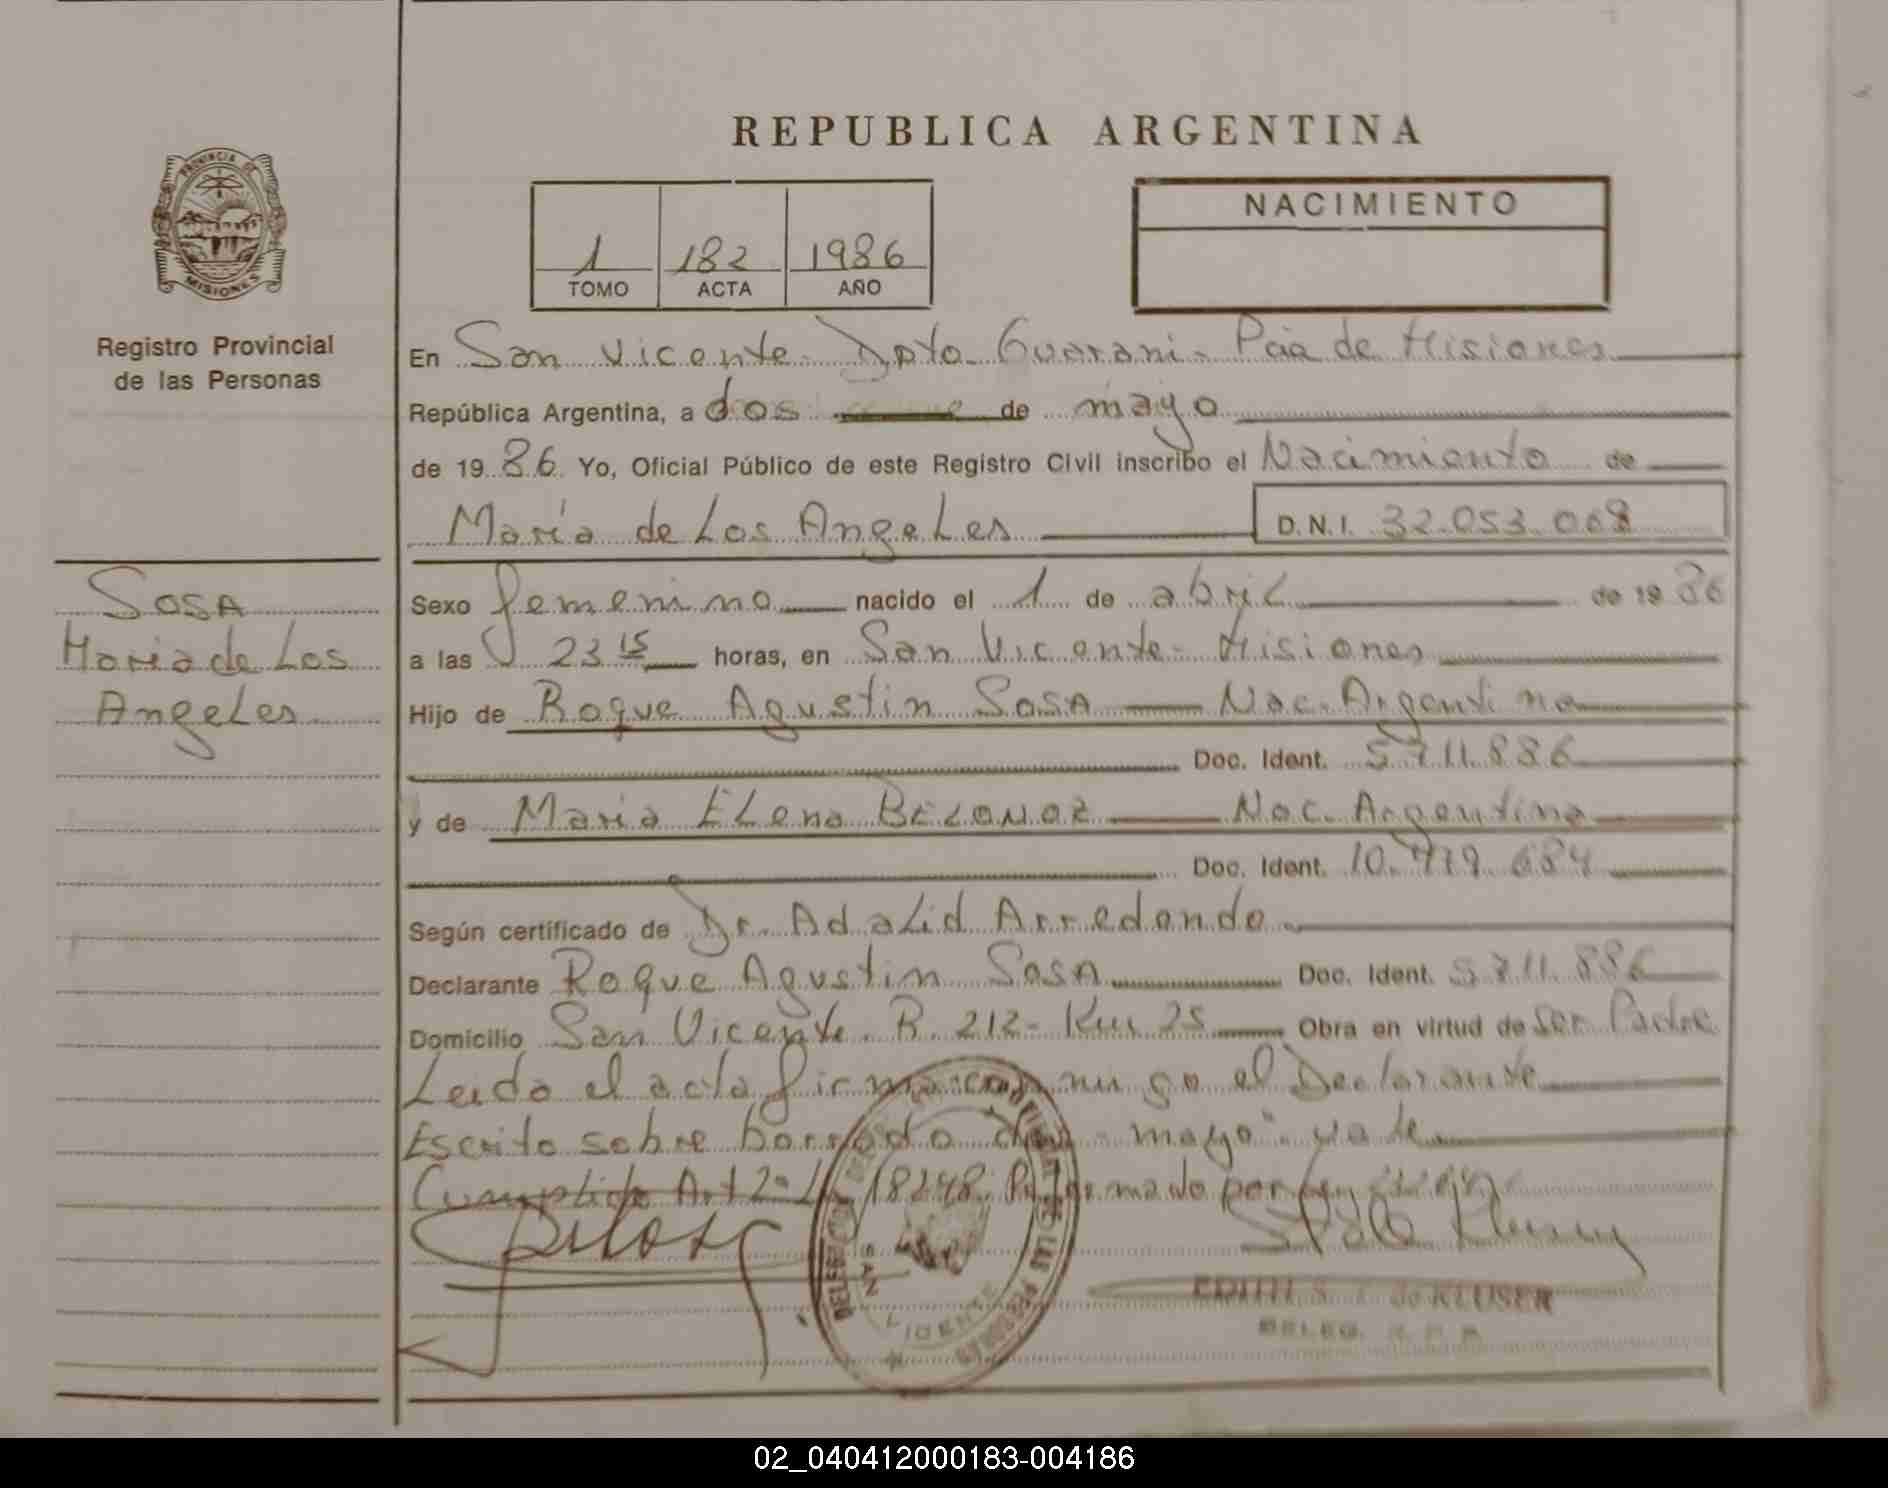 REPUBLICA ARGENTINA
PROVINCIA DE
MISIONES
Registro Provincial
de las Personas
1 182 1986
TOMO ACTA AÑO
NACIMIENTO
En San Vicente - Dpto Guarani - Pcia de Misiones
República Argentina, a dos de mayo
de 19 86 Yo, Oficial Público de este Registro Civil inscribo el Nacimiento de
María de Los Angeles D.N.I. 32.053.068
Sosa
Maria de Los
Angeles
Sexo femenino nacido el 1 de abril de 19 86
a las 23 15 horas, en San Vicente - Misiones
Hijo de Roque Agustin Sosa Nac. Argentina
Doc. Ident. 5.711.886
y de Maria Elena Nac. Argentina
Doc. Ident. 10.779.684
Según certificado de Dr. Adalid Arredondo
Declarante Roque Agustin Sosa Doc. Ident. 5711.886
Domicilio San Vicente. R. 212 - Km 25 Obra en virtud de Ser Padre
Leido el acta firma conmigo el Declarante
Escrito sobre borrado dos - mayo" vale
Cumplido Art 2º 18248 por
SAN VICENTE
EDITH S. de KLUSER
DELEG. R. P. P.
02_040412000183-004186